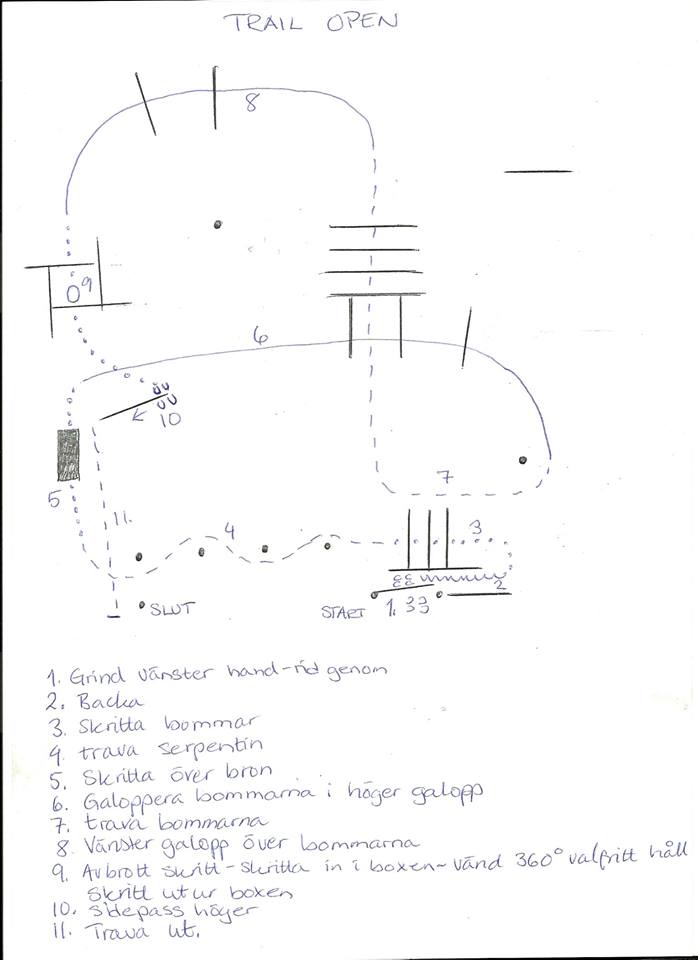 TRAIL OPEN
8
9
6
10
7
5
11.
4
3
2
SLUT
START 1.
1. Grind vänster hand-rid genom
2. Backa
3. Skritta bommar
4. trava serpentin
5. Skritta över bron
6. Galoppera bommarna i höger galopp
7. trava bommarna
8. Vänster galopp över bommarna
9. Avbrott skritt-skritta in i boxen-vänd 360° valfritt håll
Skritt ut ur boxen
10. sidepass höger
11. Trava ut.